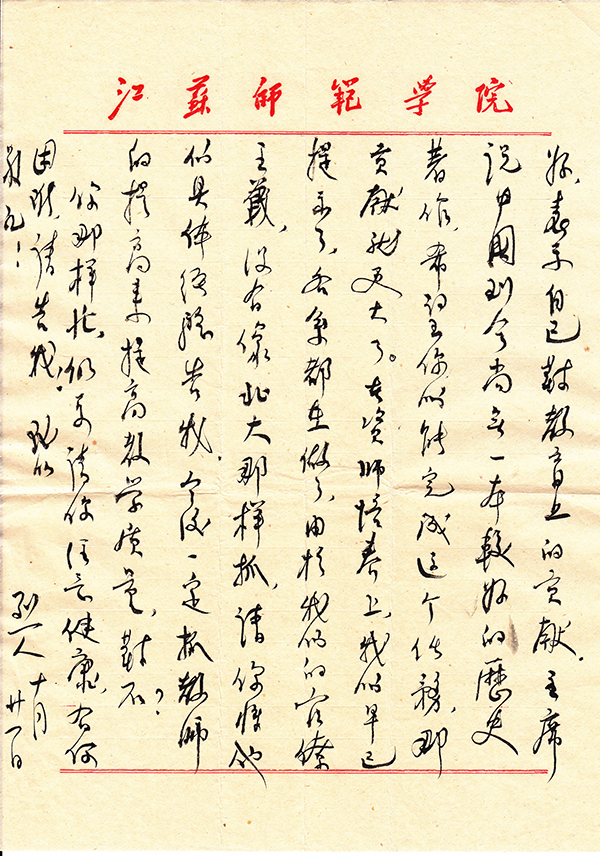 江苏师范学院
好，表示自己对教育上的贡献。主席
说中国到今尚无一本较好的历史
著作，希望你们能完成这个任务，那
贡献就更大了。在资师培养上，我们早已
提示了，各系都在做了，由于我们的官僚
主义，没有像北大那样抓，请你将他
们具体经验告我，今后一定抓教师
的提高来提高教学质量，对不？
你那样忙，仍要请你注意健康，有何
困难，请告我。致以
敬礼！
烈人 十月
廿一日